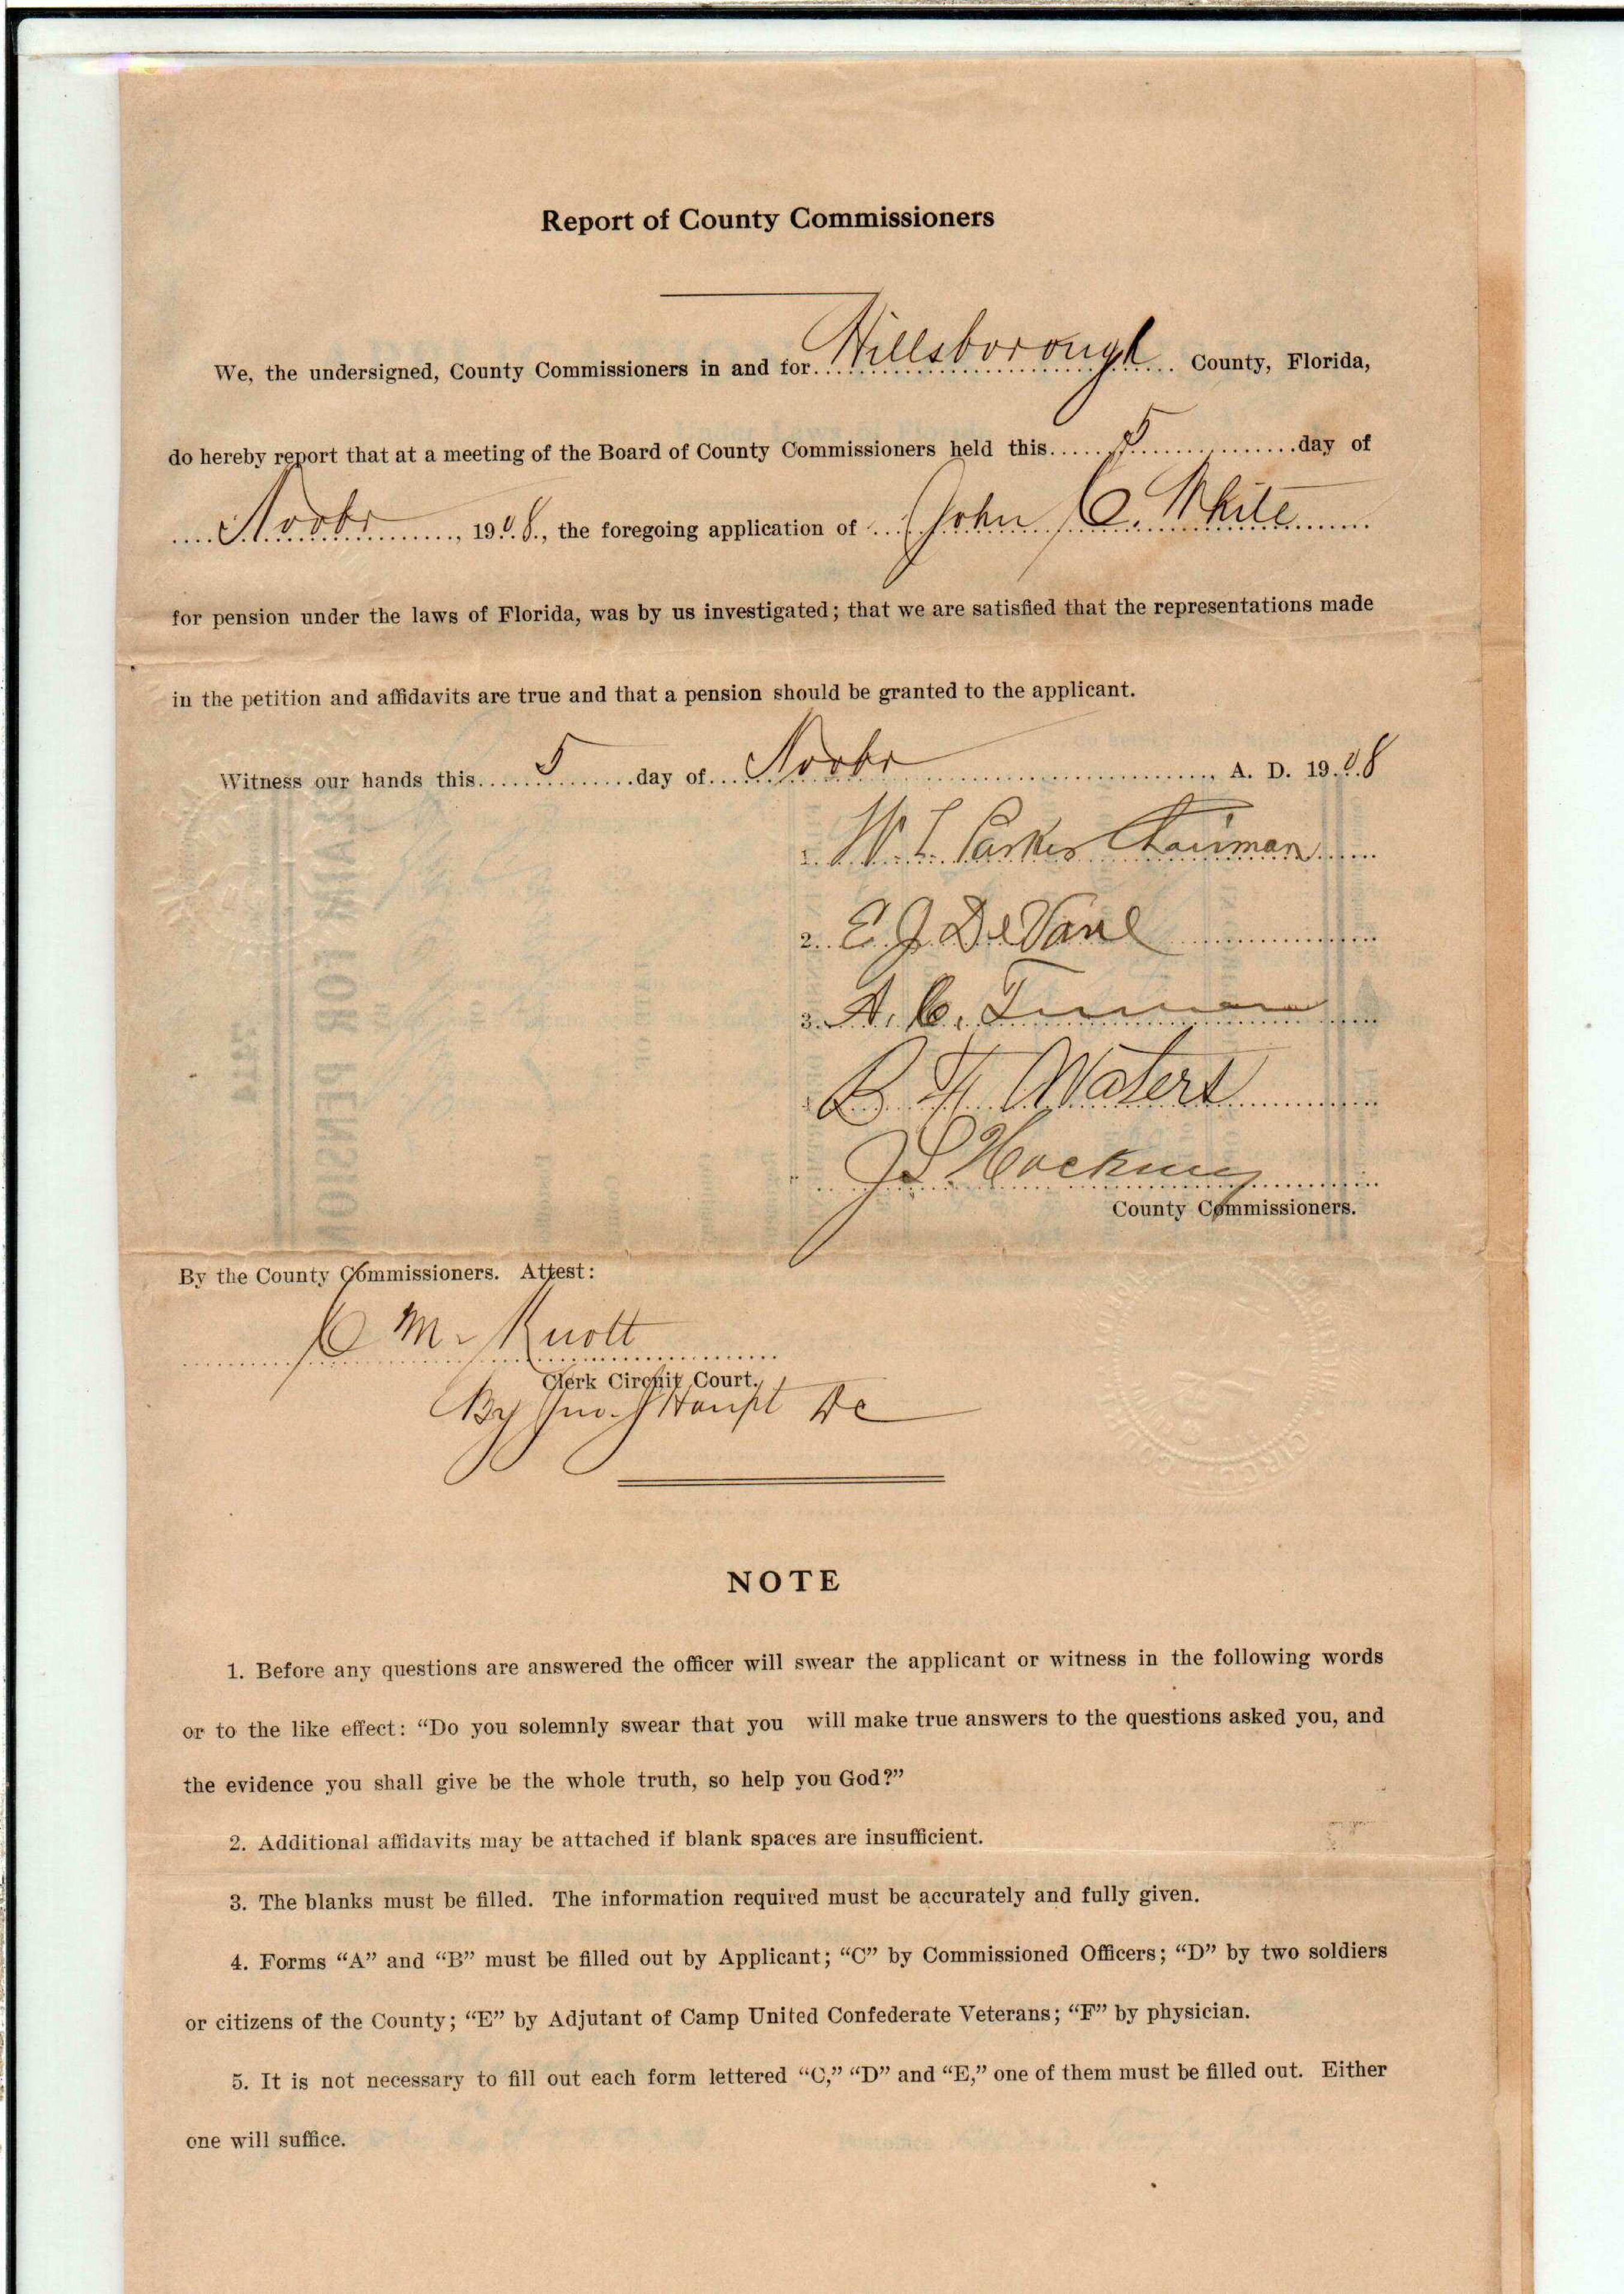 Report of County Commissioners
We, the undersigned, County Commissioners in and for Hillsborough County, Florida,
do hereby report that at a meeting of the Board of County Commissioners held this 5 day of
Novbr, 1908, the foregoing application of John C. White
for pension under the laws of Florida, was by us investigated; that we are satisfied that the representations made
in the petition and affidavits are true and that a pension should be granted to the applicant.
Witness our hands this 5 day of Novbr A. D. 1908
1. W. T. Parker Chairman
2. E J DeVane
3. A. C.
B H Waters
J S
County Commissioners.
By the County Commissioners. Attest:
C M. Knott
Clerk Circuit Court.
By Jno. Haupt DC
NOTE
1. Before any questions are answered the officer will swear the applicant or witness in the following words
or to the like effect: “Do you solemnly swear that you will make true answers to the questions asked you, and
the evidence you shall give be the whole truth, so help you God?”
2. Additional affidavits may be attached if blank spaces are insufficient.
3. The blanks must be filled. The information required must be accurately and fully given.
4. Forms “A” and “B” must be filled out by Applicant; “C” by Commissioned Officers; “D” by two soldiers
or citizens of the County; “E” by Adjutant of Camp United Confederate Veterans; “F” by physician.
5. It is not necessary to fill out each form lettered “C,” “D” and “E,” one of them must be filled out. Either
one will suffice.